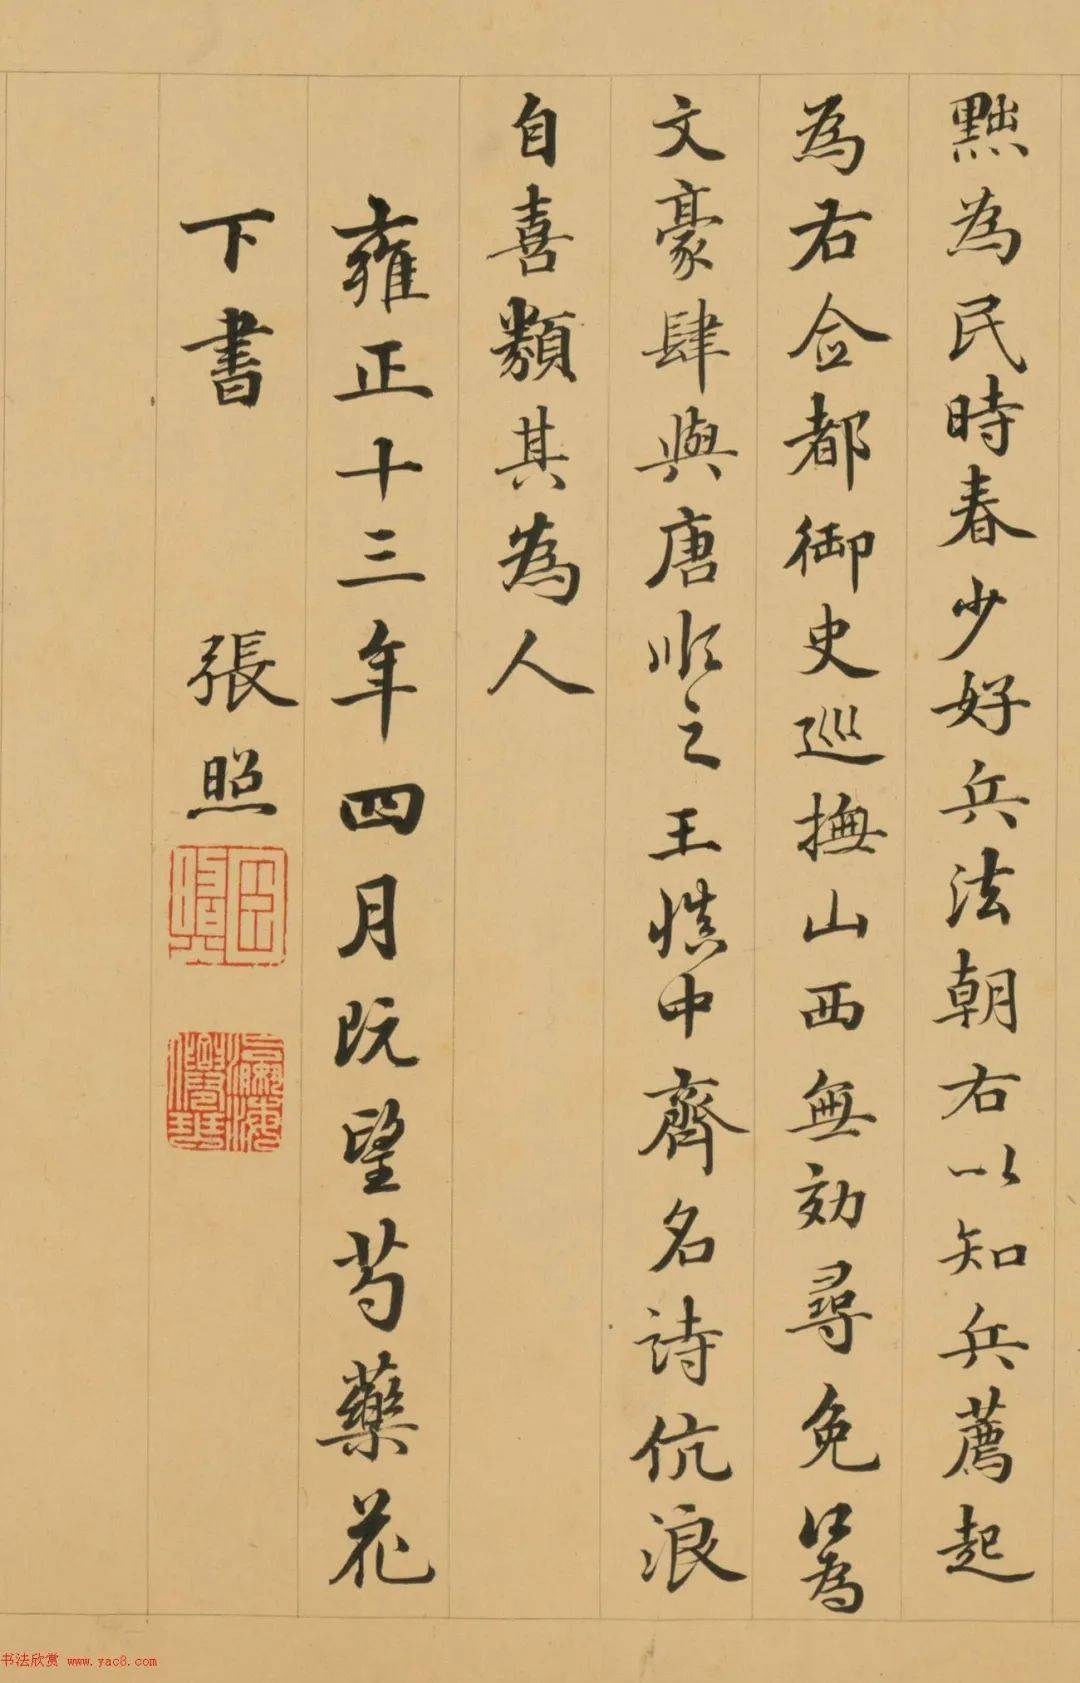 黜為民時春少好兵法朝右以知兵薦起
為右僉都御史巡撫山西無効尋免為
文豪肆與唐順之王慎中齊名詩伉浪
自喜類其為人
雍正十三年四月既望芍藥花
下書 張照
书法欣赏 www.yac8.com